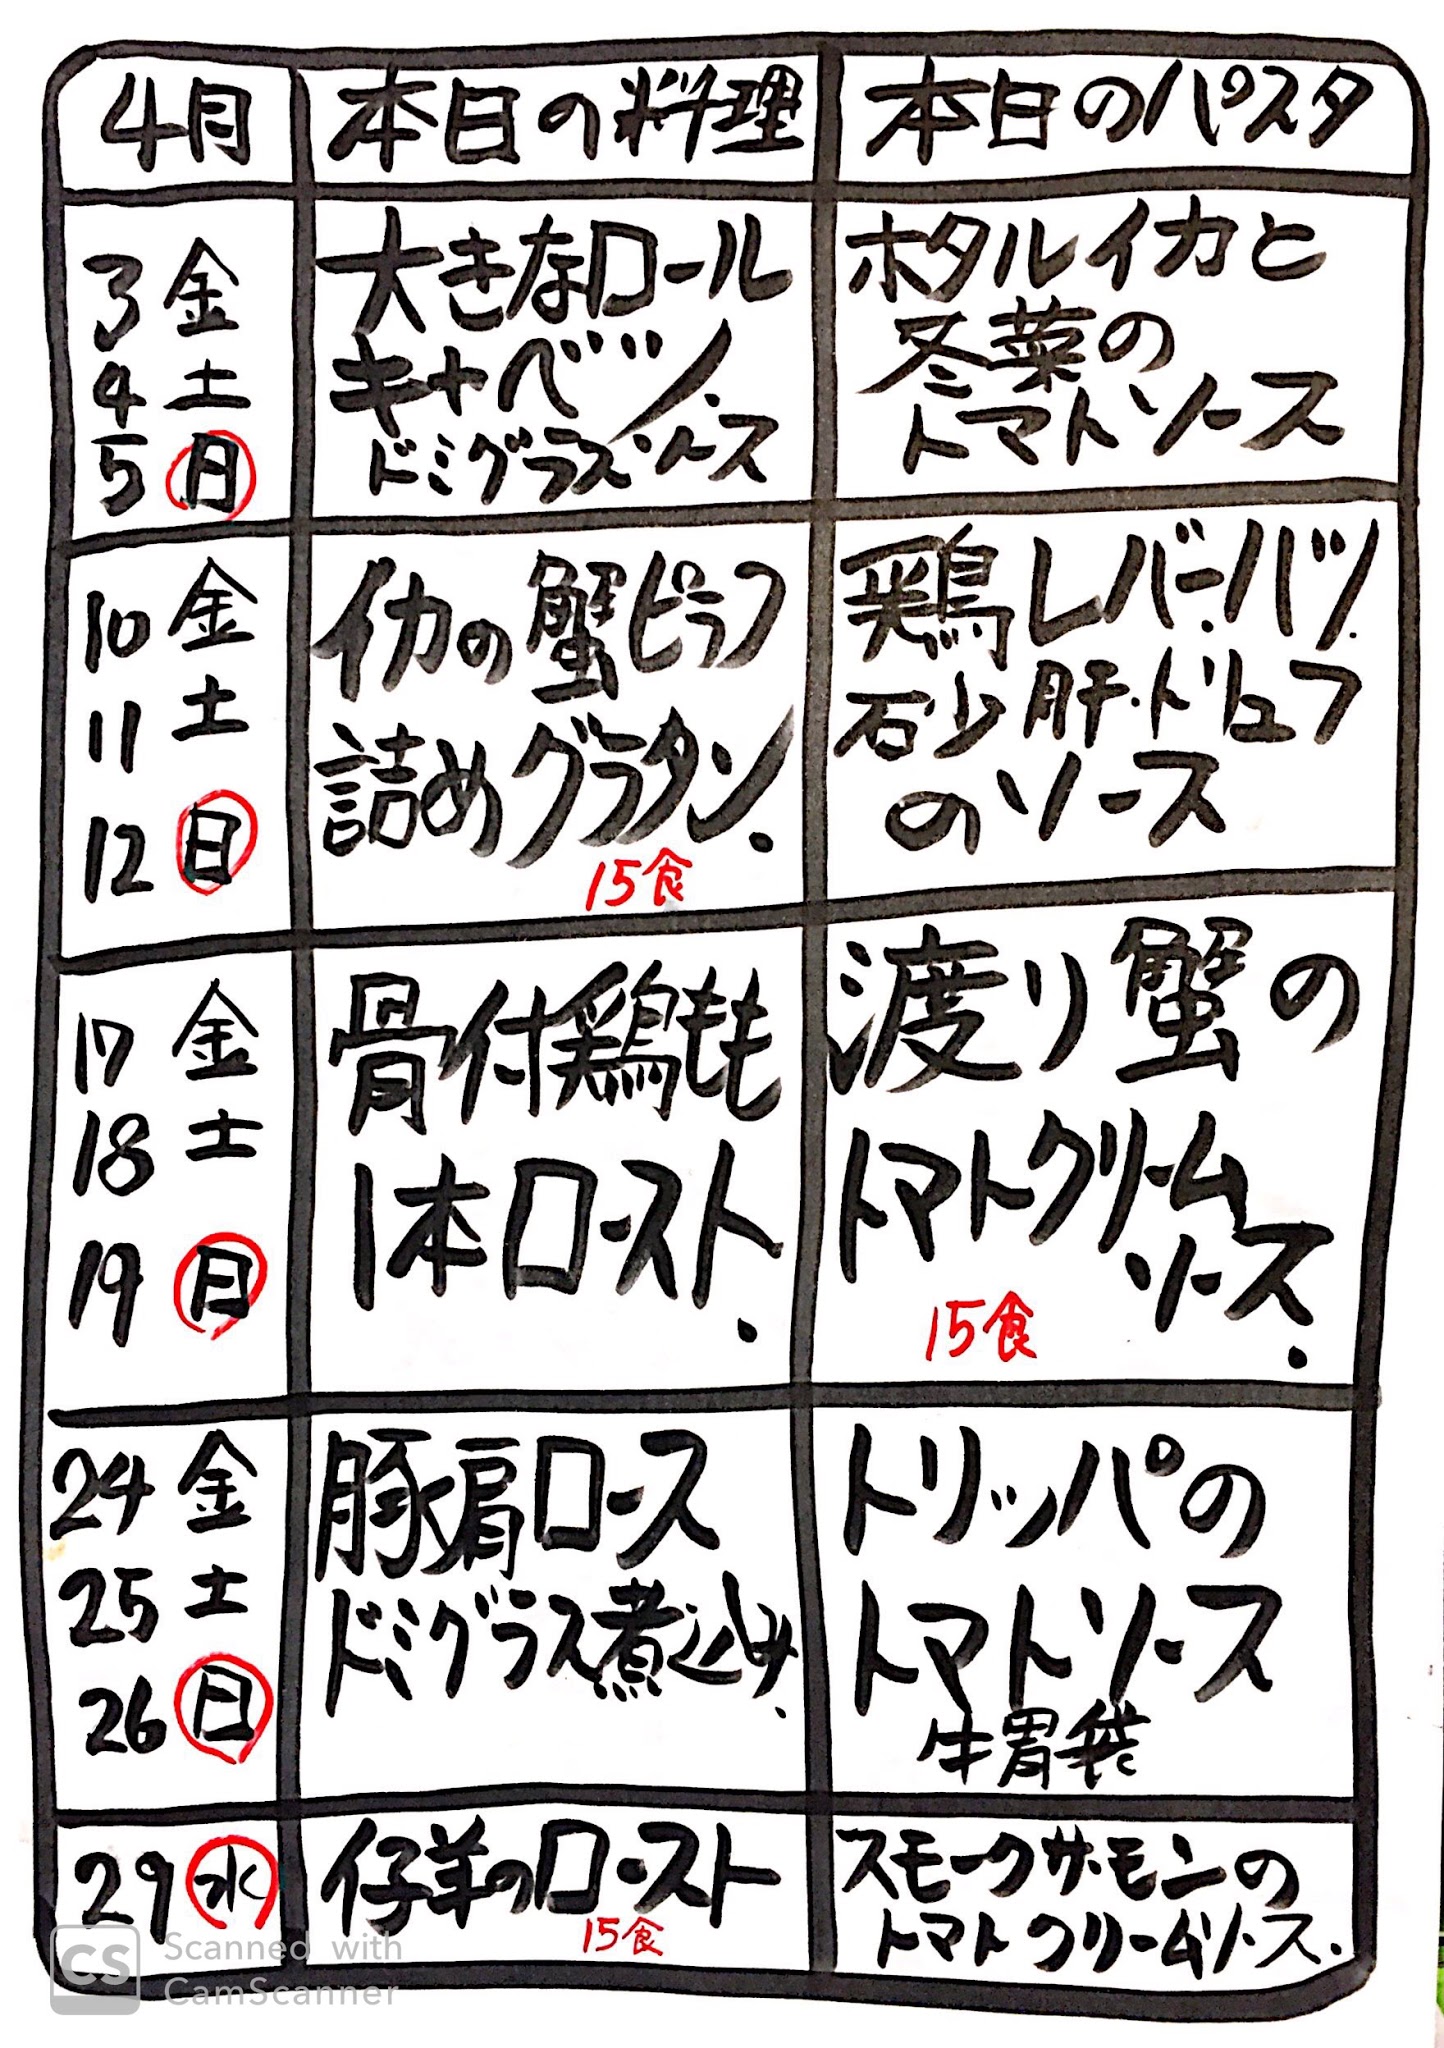 4月 本日の料理 本日のパスタ
3 金
4 土
5 日
大きなロール
キャベツ.
ドミグラスソース
ホタルイカと
冬菜の
トマトソース
10 金
11 土
12 日
イカの蟹ピラフ
詰めグラタン.
15食
鶏レバー.ハツ.
砂肝.ドリュフ
のソース
17 金
18 土
19 日
骨付鶏もも
1本ロースト.
15食
渡り蟹の
トマトクリーム
ソース.
24 金
25 土
26 日
豚肩ロース
ドミグラス煮込み.
トリッパの
トマトソース
牛胃袋
29 水
仔羊のロースト
15食
スモークサーモンの
トマトクリームソース.
CS Scanned with
CamScanner